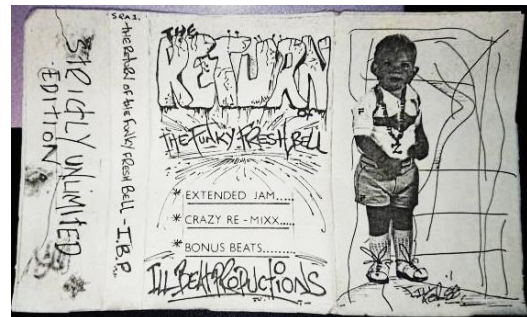 STRICTLY UNLIMITED
EDITION
SRA 1.
THE RETURN OF THE FUNKY FRESH BELL - I.B.P.
THE
RETURN
OF
THE FUNKY FRESH BELL
* EXTENDED JAM.....
* CRAZY RE-MIXX.....
* BONUS BEATS.........
ILL BEAT PRODUCTIONS